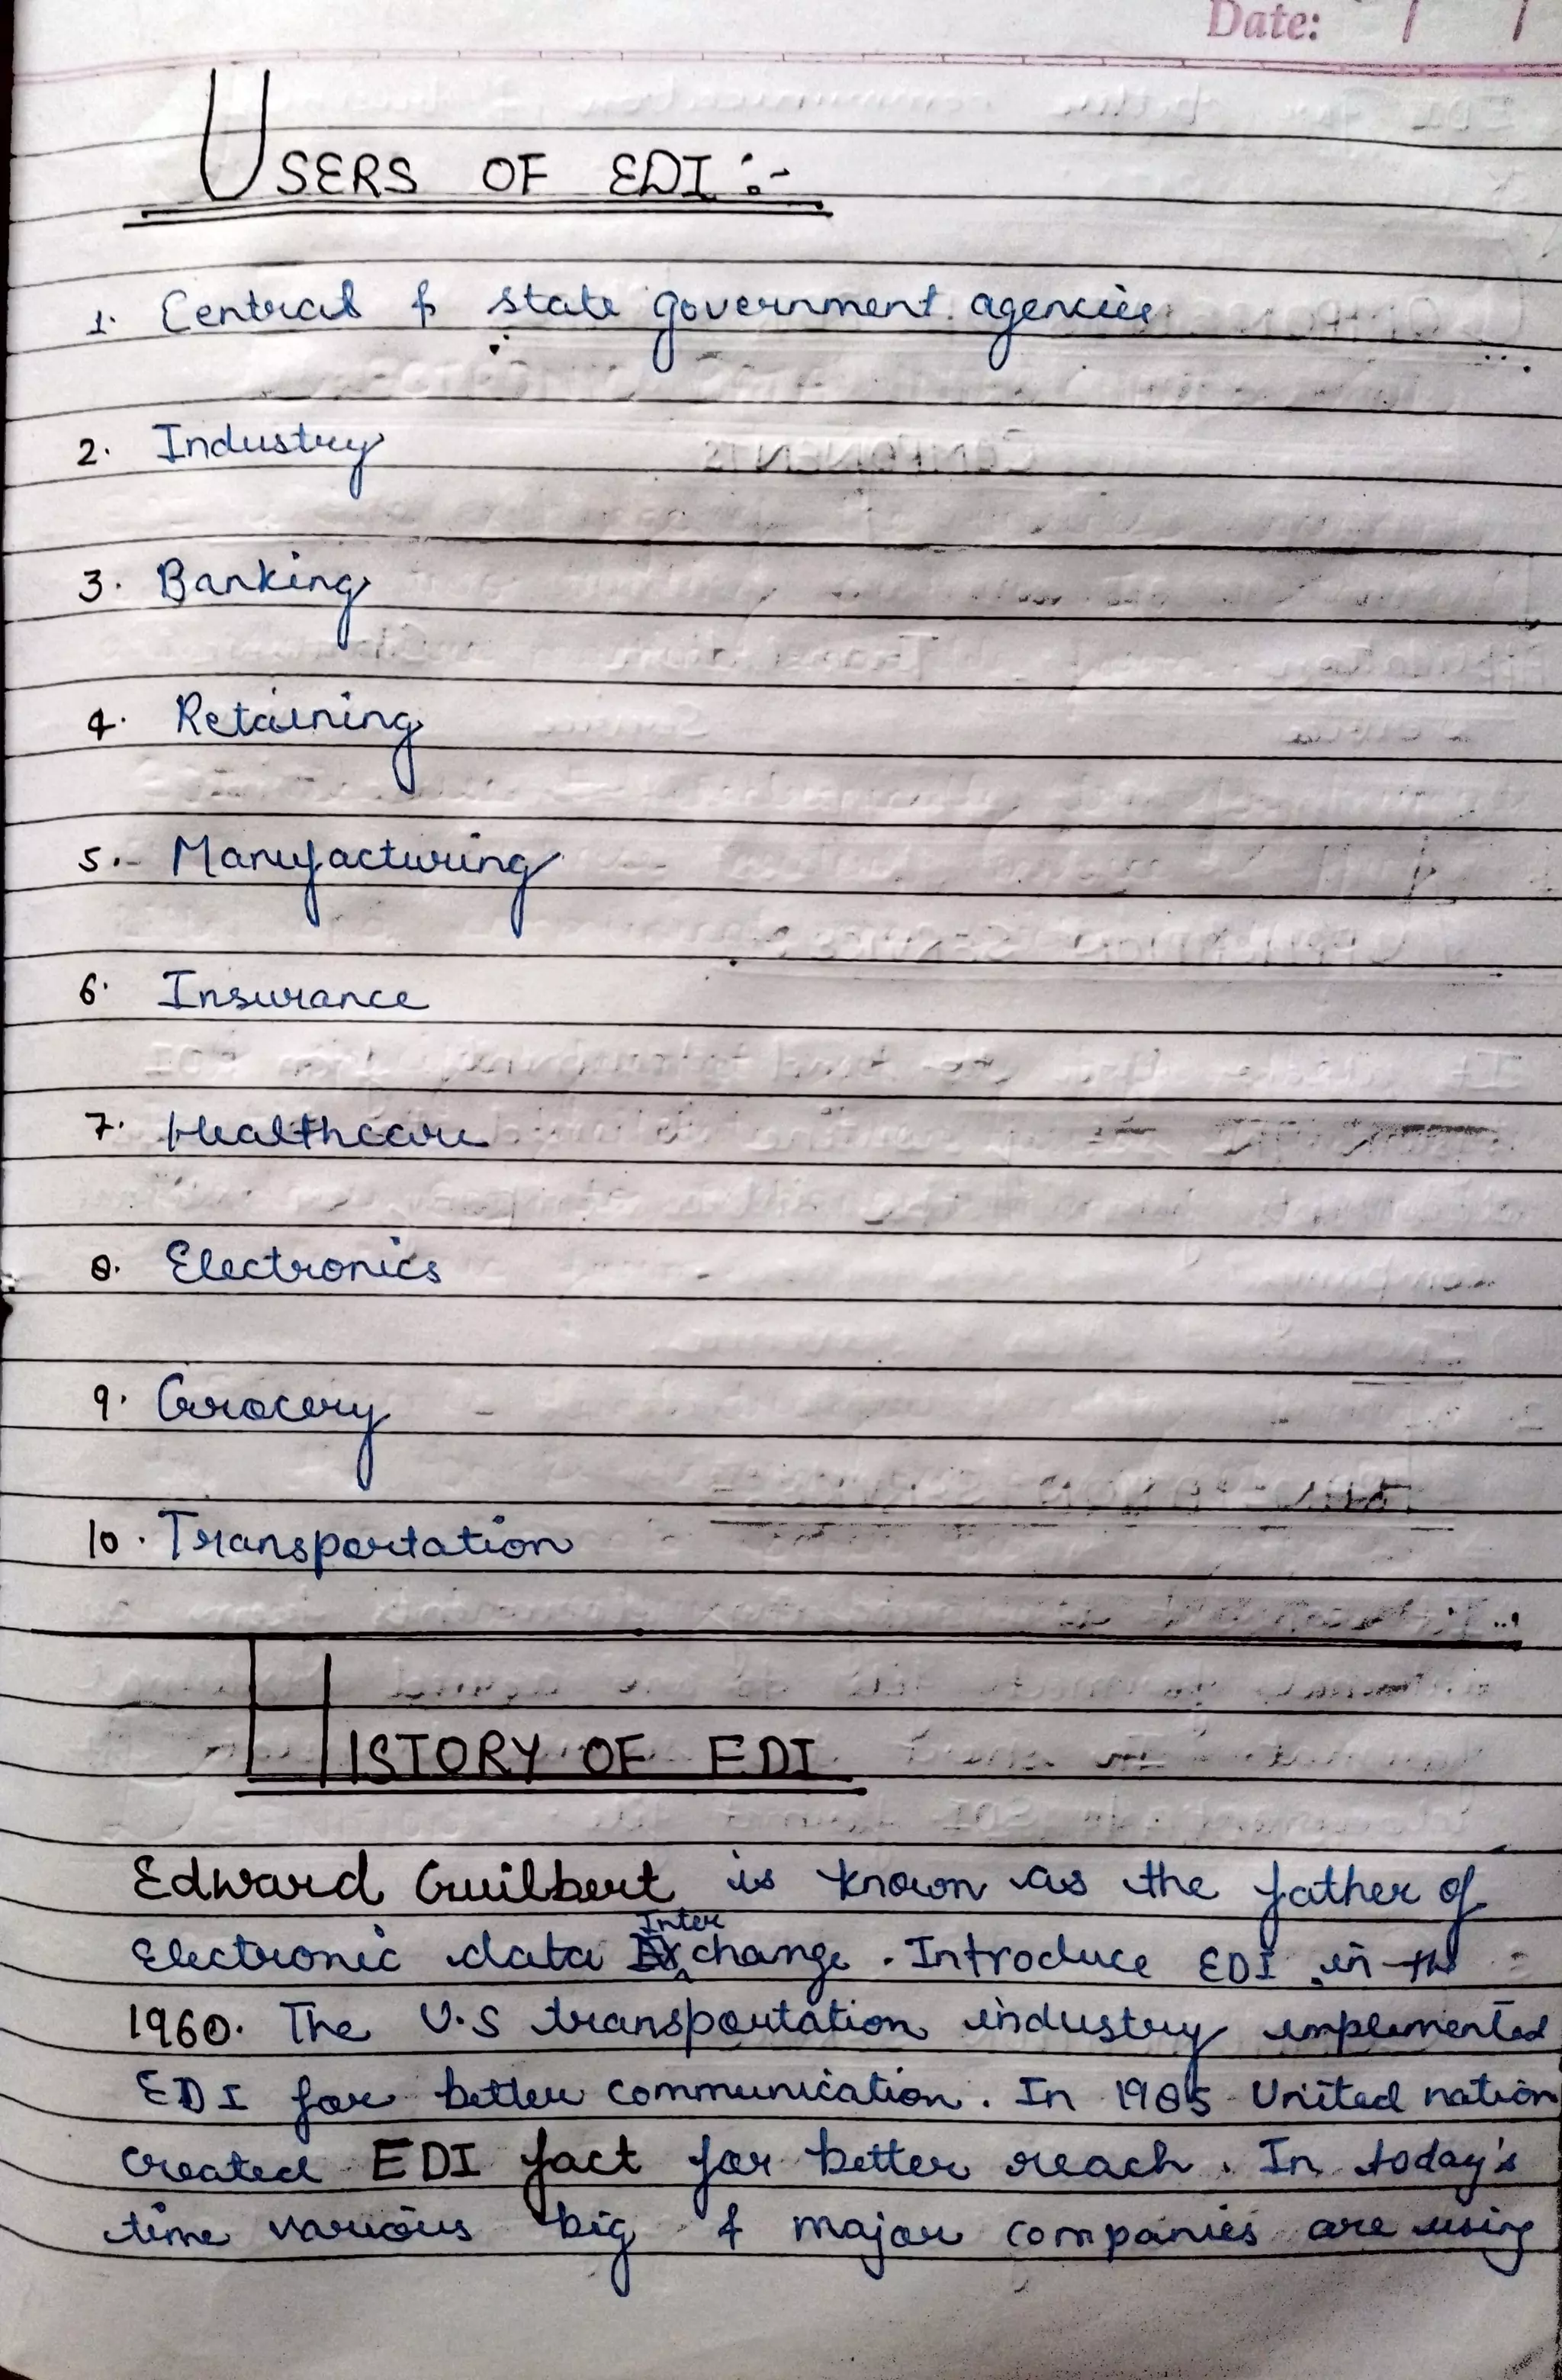 Date: / /
USERS OF EDI :-
1. Central & state government agencies
2. Industry
3. Banking
4. Retaining
5. Manufacturing
6. Insurance
7. Healthcare
8. Electronics
9. Grocery
10. Transportation
HISTORY OF EDI
Edward Guilbert is known as the father of
Inter
Electronic data change. Introduce EDI in the
1960. The U.S transportation industry implemented
EDI for better communication. In 1985 United nation
created EDI fact for better reach. In today's
time various big & major companies are using